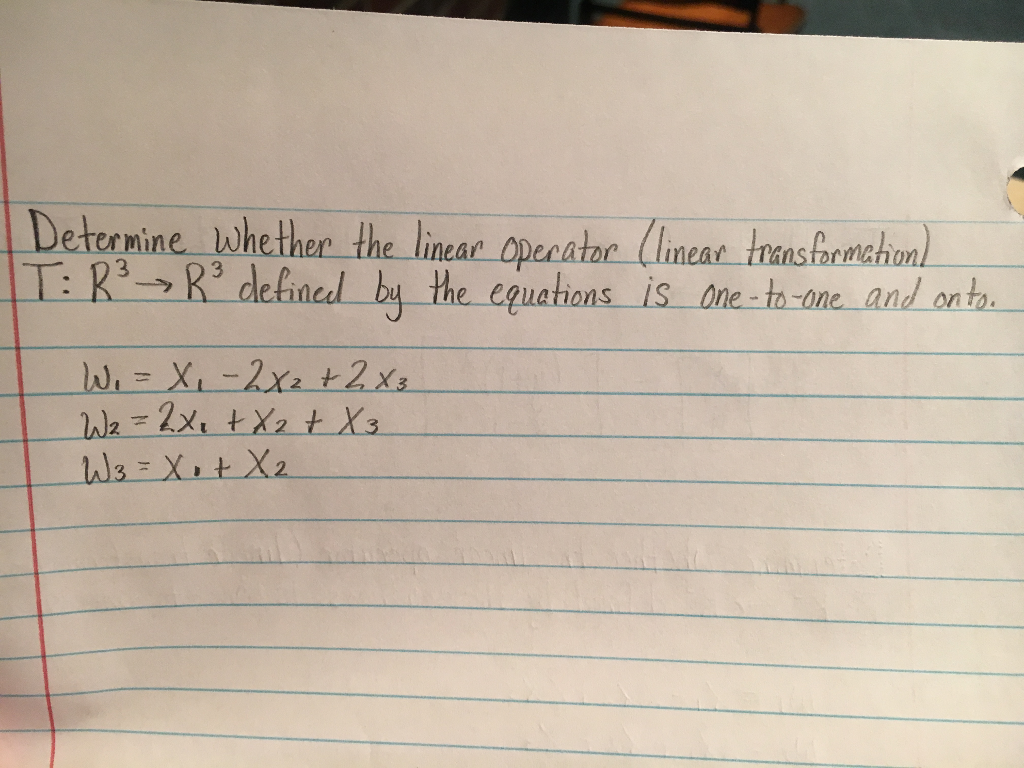 Determine whether the linear operator (linear transformation)
T: R³ → R³ defined by the equations is one-to-one and onto.
W₁ = X₁ - 2x₂ + 2x₃
W₂ = 2x₁ + X₂ + X₃
W₃ = X₁ + X₂